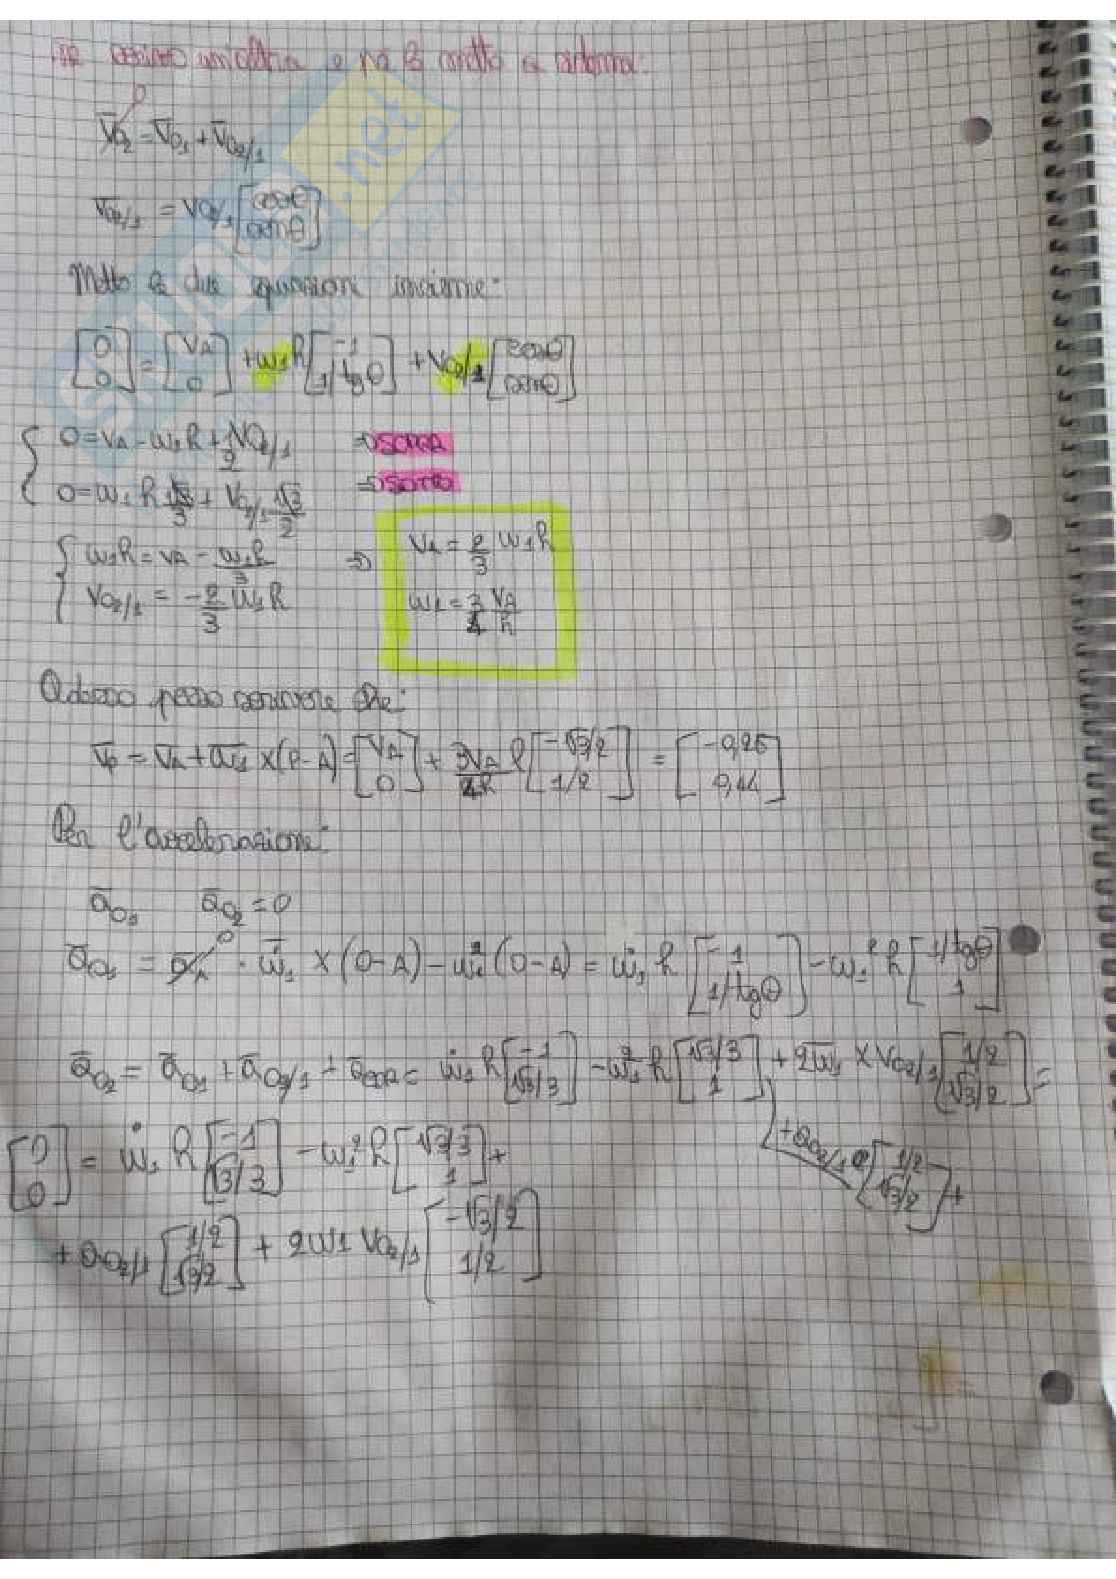 V̅O₂ = V̅O₁ + V̅O₂/₁
0
V̅O₂/₁ = VO₂/₁ [cosθ; senθ]
Metto le due equazioni insieme:
[0; 0] = [VA; 0] + ω₁h [-1; 1/tgθ] + VO₂/₁ [cosθ; senθ]
{ 0 = VA - ω₁h + 1/2 VO₂/₁ ⇒ SOPRA
0 = ω₁h √3/3 + VO₂/₁ √3/2 ⇒ SOTTO
{ ω₁h = VA - ω₁h/3 ⇒ VA = 2/3 ω₁h
VO₂/₁ = -2/3 ω₁h ω₁ = 3/4 VA/h
Adesso posso scrivere che:
V̅P = V̅A + ω̅₁ × (P-A) = [VA; 0] + 3VA/4h l [-√3/2; 1/2] = [-0,25; 0,44]
Per l'accelerazione:
a̅O₁ a̅O₂ = 0
a̅O₁ = a̅A · ω̅̇₁ × (O-A) - ω₁² (O-A) = ω̇₁ h [-1; 1/tgθ] - ω₁² h [1/tgθ; 1]
0
a̅O₂ = a̅O₁ + a̅O₂/₁ + a̅COR = ω̇₁ h [-1; √3/3] - ω₁² h [√3/3; 1] + 2ω̅₁ × VO₂/₁ [1/2; √3/2] =
+ aO₂/₁ [1/2; √3/2] +
[0; 0] = ω̇₁ h [-1; √3/3] - ω₁² h [√3/3; 1] +
+ aO₂/₁ [1/2; √3/2] + 2ω₁ VO₂/₁ [-√3/2; 1/2]
SKUOLA.net